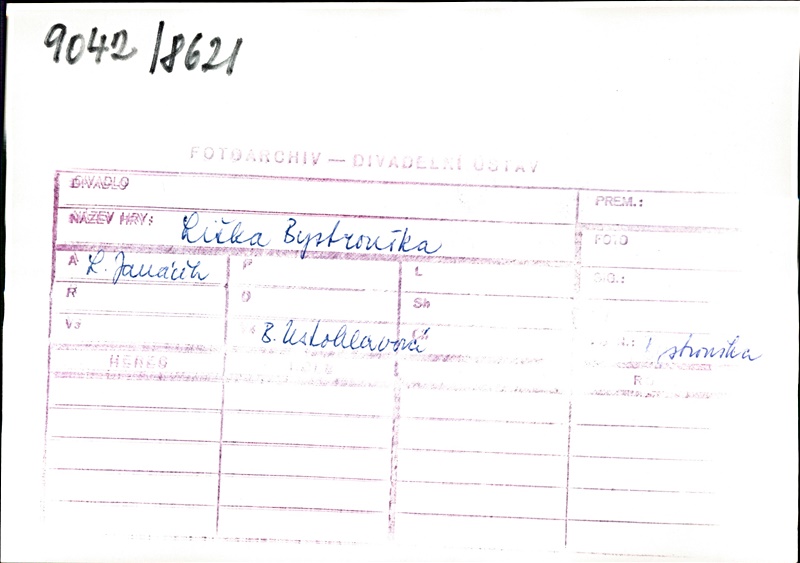 9042/8621
FOTOARCHIV — DIVADELNÍ ÚSTAV
DIVADLO
PREM.:
NÁZEV HRY: Liška Bystrouška
FOTO
A L. Janáček
P
L
SIG.:
R
O
Sh
Vs
B. Ustohlavová
HEREC